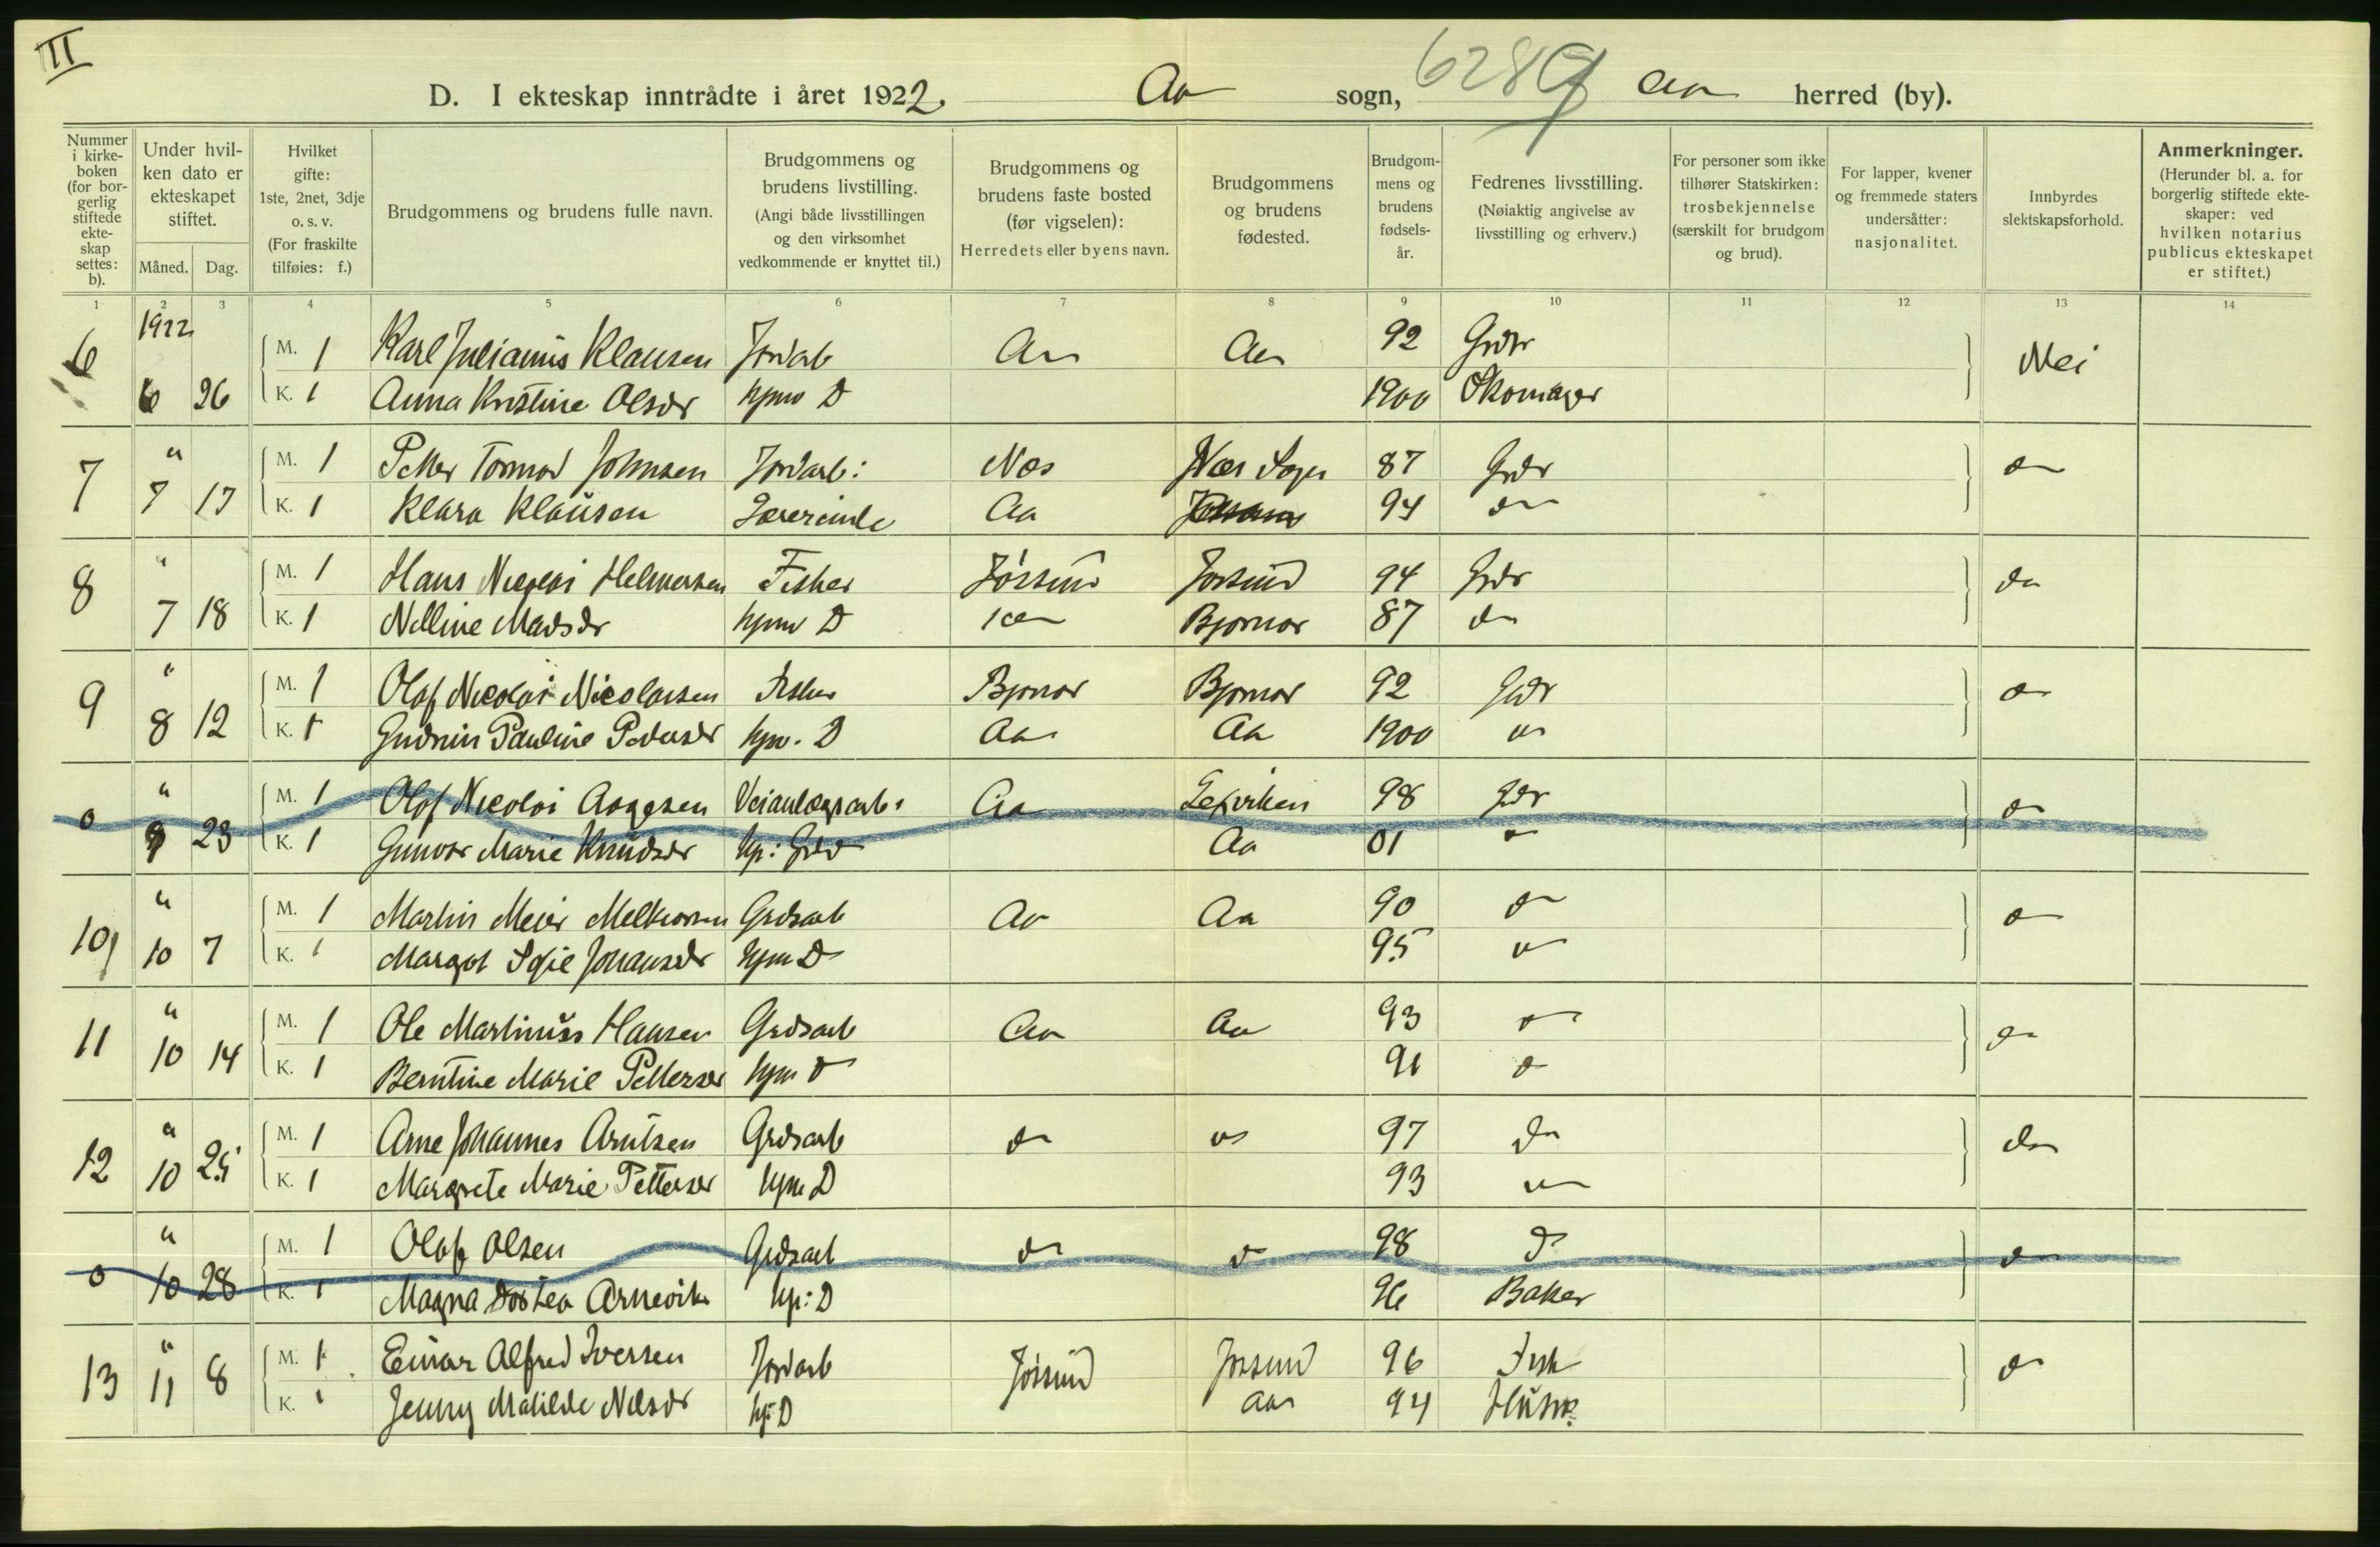 II
D. I ekteskap inntrådte i året 1922. Aa sogn, 628g Aa herred (by).
Nummer i kirkeboken (for borgerlig stiftede ekteskap settes: b).
Under hvilken dato er ekteskapet stiftet.
Måned. Dag.
Hvilket gifte: 1ste, 2net, 3dje o. s. v. (For fraskilte tilføies: f.)
Brudgommens og brudens fulle navn.
Brudgommens og brudens livstilling. (Angi både livsstillingen og den virksomhet vedkommende er knyttet til.)
Brudgommens og brudens faste bosted (før vigselen): Herredets eller byens navn.
Brudgommens og brudens fødested.
Brudgommens og brudens fødselsår.
Fedrenes livsstilling. (Nøiaktig angivelse av livsstilling og erhverv.)
For personer som ikke tilhører Statskirken: trosbekjennelse (særskilt for brudgom og brud).
For lapper, kvener og fremmede staters undersåtter: nasjonalitet.
Innbyrdes slektskapsforhold.
Anmerkninger. (Herunder bl. a. for borgerlig stiftede ekteskaper: ved hvilken notarius publicus ekteskapet er stiftet.)
1 2 3 4 5 6 7 8 9 10 11 12 13 14
1922
6 M. 1 Karl Julianus Klausen Jordarb Aa Aa 92 Grdr Nei
6 26 K. 1 Anna Kristine Olsdr hjmv D 1900 Skomager
7 " M. 1 Petter Tormod Johnsen Jordarb: Nes Nes Sogn 87 Grdr do
7 17 K. 1 Klara Klausen Lærerinde Aa 94 do
8 " M. 1 Hans Nicolai Helmersen Fisker Jøssund Jøssund 94 Grdr do
7 18 K. 1 Nelline Madsdr hjmv D Bjørnør 87 do
9 " M. 1 Olaf Nicolai Nicolaisen Fisker Bjørnør Bjørnør 92 Grdr do
8 12 K. 1 Gudrun Pauline Pedersdr hjv. D Aa Aa 1900 do
0 " M. 1 Olaf Nicolai Aagesen Veianlægsarb. Aa Leksviken 98 Grdr do
9 23 K. 1 Gunvor Marie Knudsdr hj: Aa 01 do
10 " M. 1 Martin Meier Melkiorsen Grdsarb Aa Aa 90 do do
10 7 K. 1 Margot Sofie Johansdr hjm D 95 do
11 " M. 1 Ole Martinus Hansen Grdsarb Aa Aa 93 do do
10 14 K. 1 Berntine Marie Pettersdr hjm D 91 do
12 " M. 1 Arne Johannes Arntsen Grdsarb do do 97 do do
10 25 K. 1 Margrete Marie Pettersdr hjm D 93 do
0 " M. 1 Olaf Olsen Grdsarb do do 98 do do
10 28 K. 1 Magna Dortea Arnevik hj: D 96 Baker
13 " M. 1 Einar Alfred Iversen Jordarb Jøssund Jøssund 96 Fisk do
11 8 K. 1 Jenny Matilde Nilsdr hj: D Aa 94 Husm.